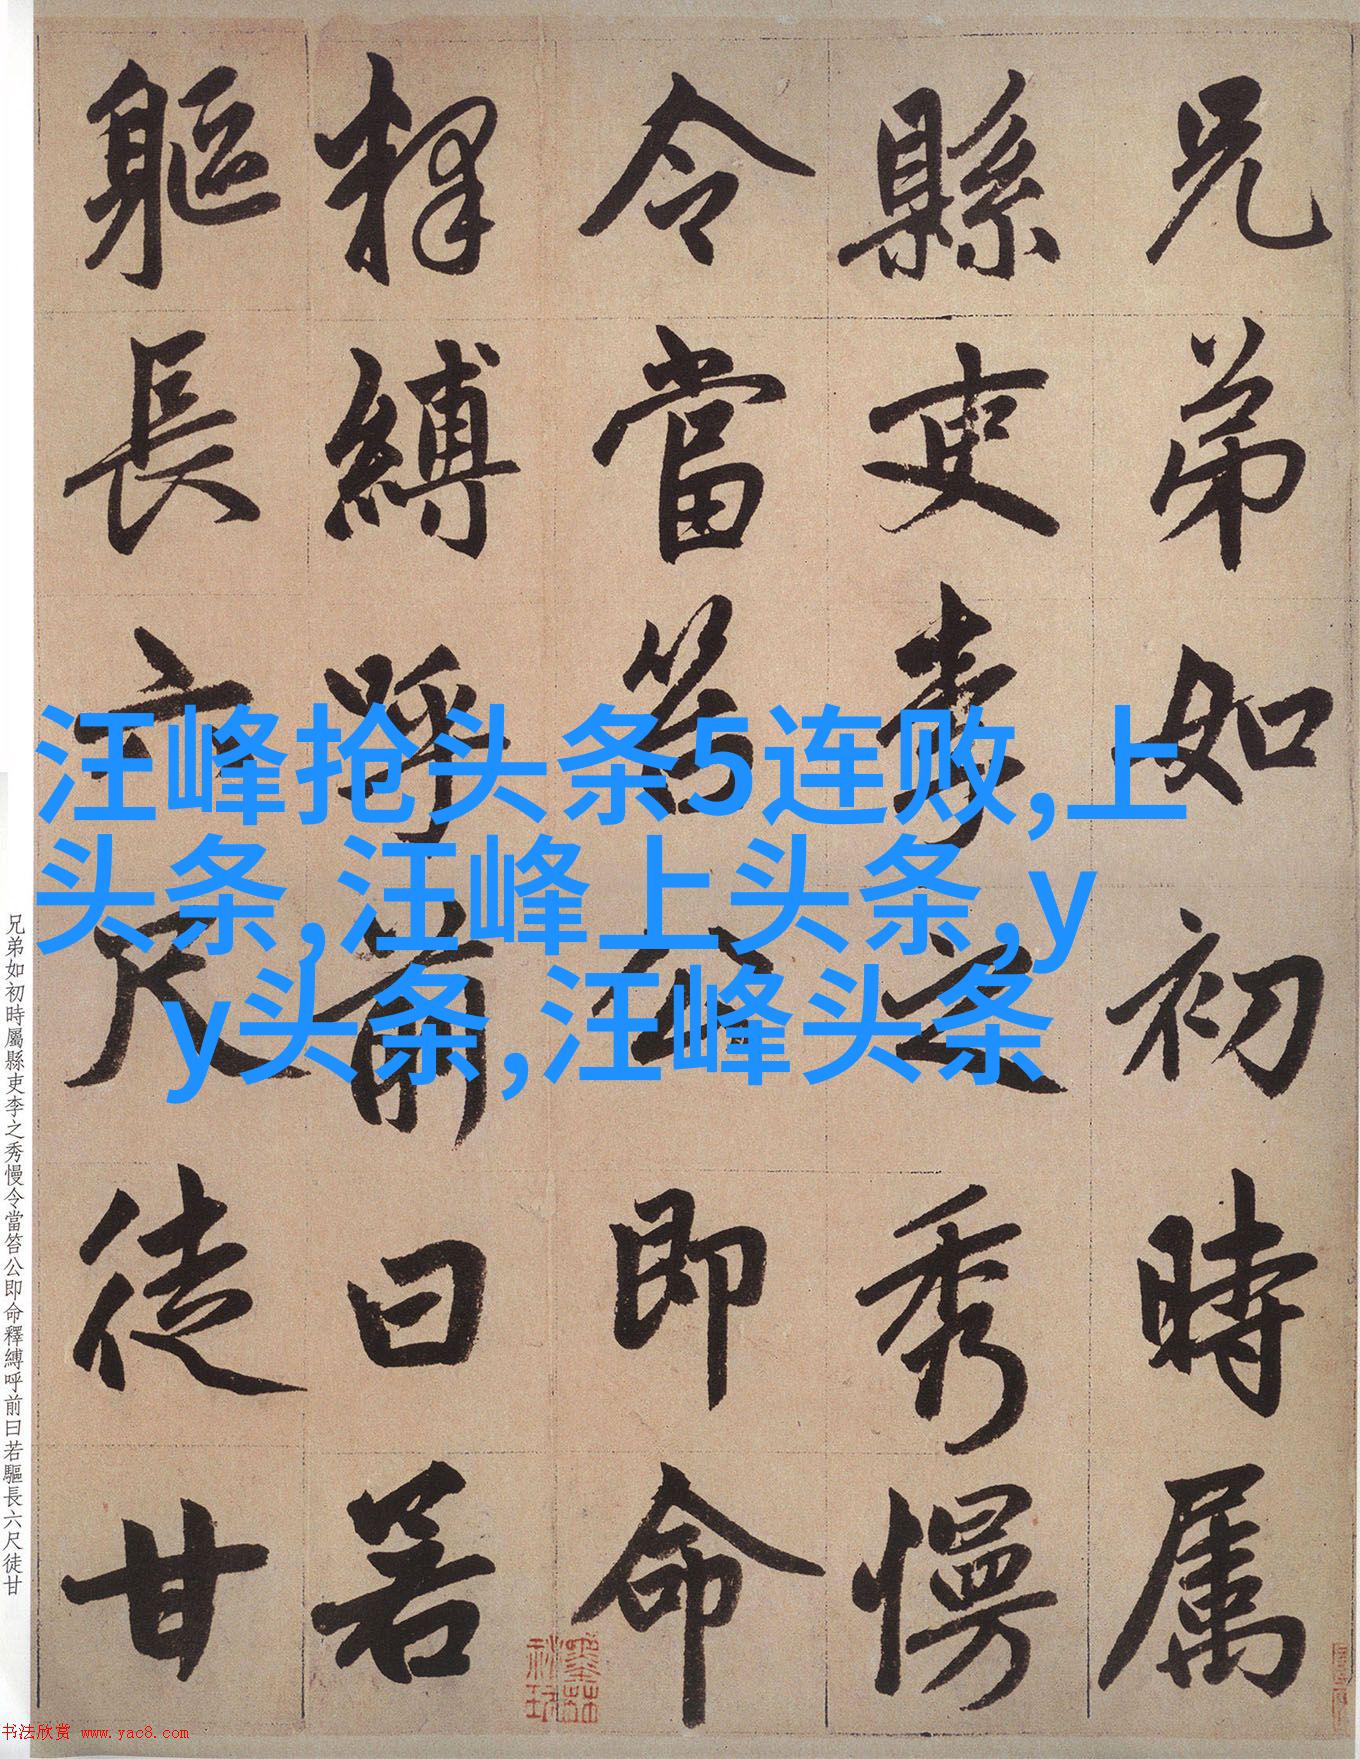 兄弟如初時属
縣吏李之秀慢
令當笞公即命
釋縛呼前曰若
軀長六尺徒甘
汪峰抢头条5连败,上
头条,汪峰上头条,y
y头条,汪峰头条
兄弟如初時屬縣吏李之秀慢令當笞公即命釋縛呼前曰若驅長六尺徒甘
书法欣赏 www.yac8.com